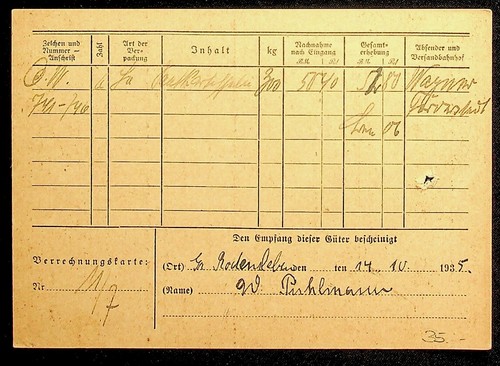 Zeichen und Nummer — Anschrift Zahl Art der Verpackung Inhalt kg Nachnahme nach Eingang Gesamterhebung Absender und Versandbahnhof
RM Rpf RM Rpf
O.W. 6 Sa 300 50 40 52 80 Wagner
741-746
06
Den Empfang dieser Güter bescheinigt
Verrechnungskarte:
(Ort) Gr. Rodensleben den 14. 10. 1935.
Nr 11/7
(Name) W. Puhlmann
35.-